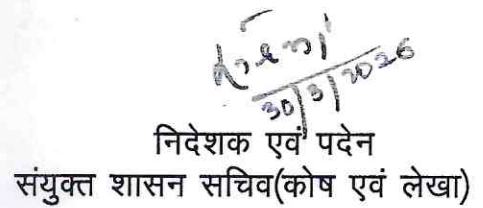 30/3/2026
निदेशक एवं पदेन
संयुक्त शासन सचिव(कोष एवं लेखा)